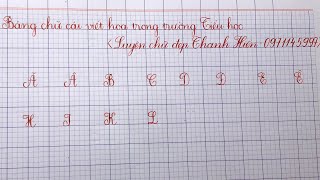 Bảng chữ cái viết hoa trong trường Tiểu học
(Luyện chữ đẹp Thanh Hiền 0971145997)
A Ă B C D Đ E Ê
H I K L